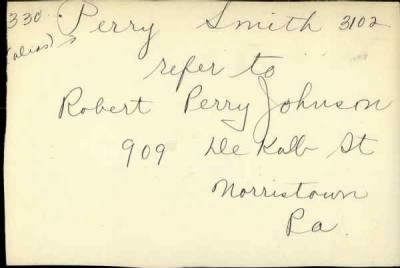 330 Perry Smith 3102
(alias)
refer to
Robert Perry Johnson
909 De Kalb St
Norristown
Pa.